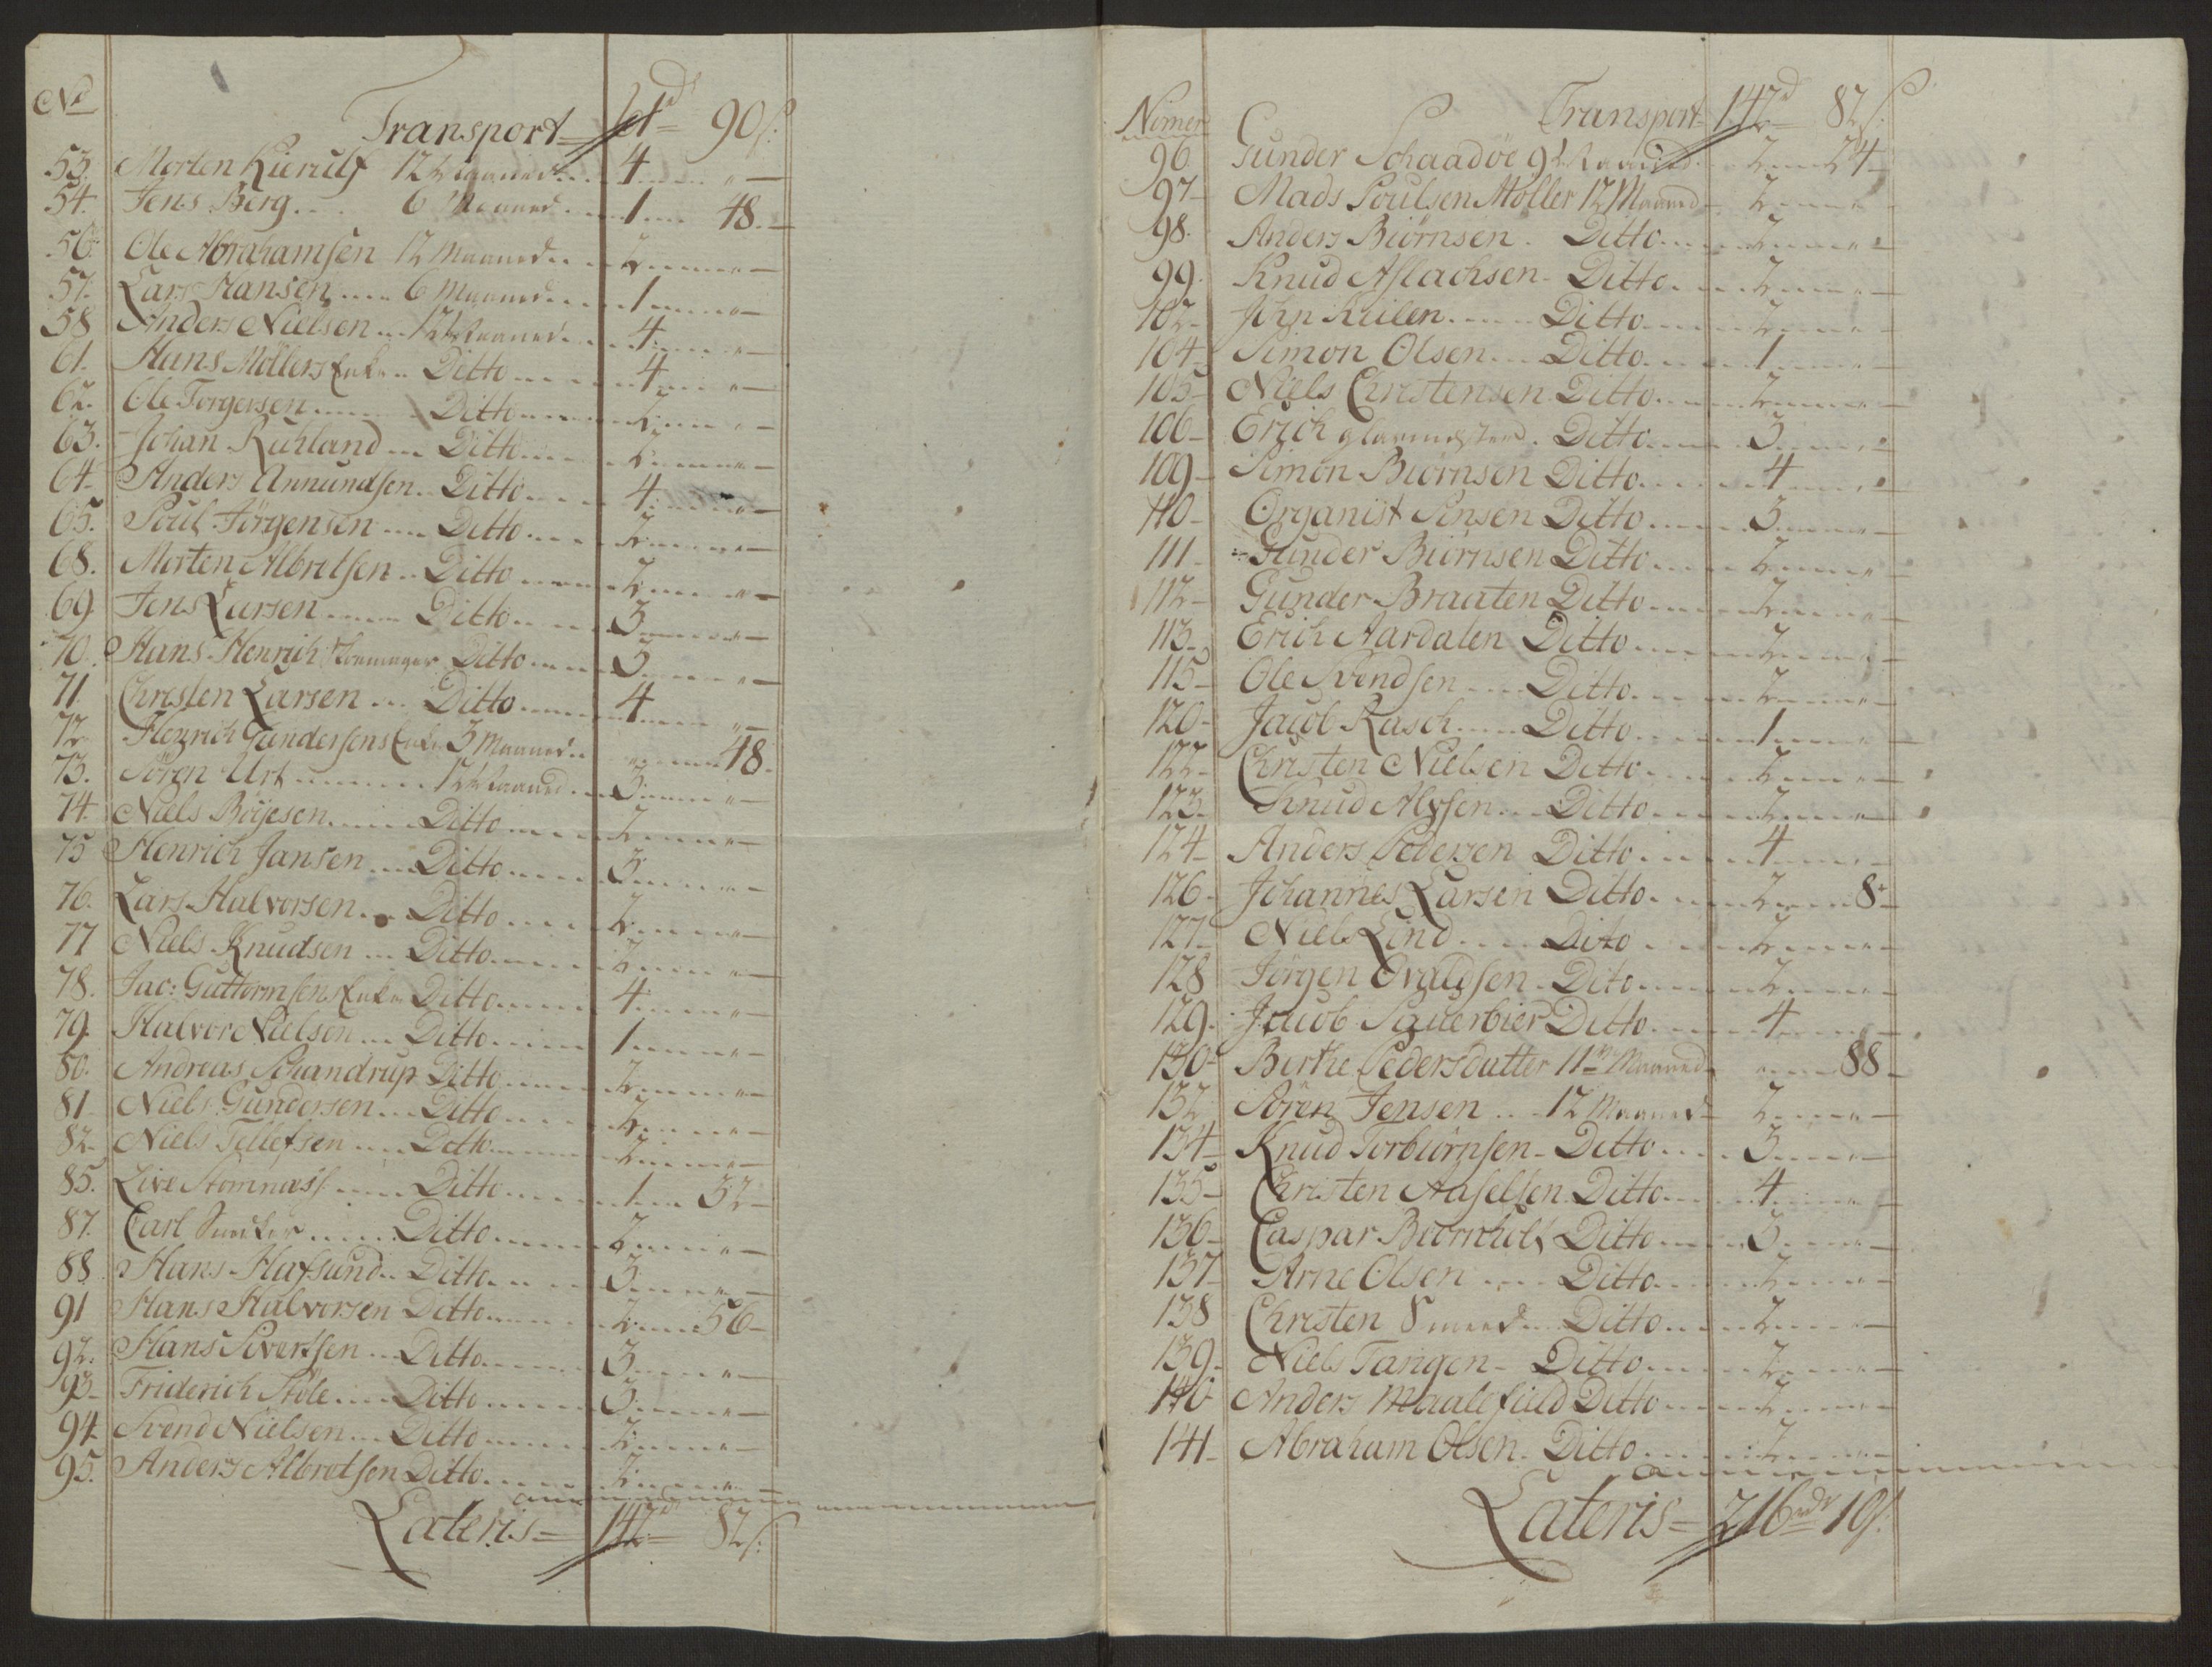 No
Transport 90 s:
53. Morten Kierulf 12 Maaned 4 "
54. Jens Berg 6 Maaned 1 48.
56. Ole Abrahamsen 12 Maaned 2 "
57. Lars Hansen 6 Maaned 1 "
58 Anders Nielsen 12 Maaned 4 "
61. Hans Möllers Enke Ditto 4 "
62. Ole Torgersen Ditto 2 "
63. Johan Ruhland Ditto 2 "
64. Anders Annundsen Ditto 4 "
65. Poul Jörgensen Ditto 2 "
68. Morten Albretsen Ditto 2 "
69 Jens Larsen Ditto 3 "
70. Hans Henrich Ditto 3 "
71 Christen Larsen Ditto 4 "
72 Henrich Gundersens Enke 3 Maaned " 48.
73. Sören Urt 12 Maaned 3 "
74. Niels Böyesen Ditto 2 "
75 Henrich Jansen Ditto 3 "
76. Lars Halvorsen Ditto 2 "
77 Niels Knudsen Ditto 2 "
78. Jac: Guttormsens Enke Ditto 4 "
79. Halvor Nielsen Ditto 1 "
80. Andreas Schandrup Ditto 2 "
81 Niels Gundersen Ditto 2 "
82 Niels Tellefsen Ditto 2 "
85. Live Ditto 1 32
87. Carl Ditto 2 "
88 Hans Hafsund Ditto 3 "
91 Hans Halvorsen Ditto 2 56
92. Hans Sivertsen Ditto 3 "
93 Friderich Ditto 3 "
94 Svend Nielsen Ditto 2 "
95. Anders Albretsen Ditto 2 "
Lateris 142d 82 s:
Nomer Transport 142d 82 s:
96 Gunder Schaadöe 9 Maaned 2 24
97 Mads Poulsen Möller 12 Maaned 2 "
98. Anders Biörnsen Ditto 2 "
99. Knud Aslachsen Ditto 2 "
102 John Keilen Ditto 2 "
104 Simon Olsen Ditto 1 "
105 Niels Christensen Ditto 2 "
106 Erich Ditto 3 "
109 Simon Biörnsen Ditto 4 "
110 Organist Ditto 3 "
111 Gunder Biörnsen Ditto 2 "
112 Gunder Braaten Ditto 2 "
113 Erich Aardalen Ditto 2 "
115 Ole Svendsen Ditto 2 "
120 Jacob Rasch Ditto 1 "
122 Christen Nielsen Ditto 2 "
123 Knud Ditto 2 "
124 Anders Pedersen Ditto 4 "
126 Johannes Larsen Ditto 2 8
127 Niels Lind Ditto 2 "
128 Jörgen Ditto 2 "
129. Jacob Ditto 4 "
130 Birthe Pedersdatter 11 Maaned " 88
132 Sören Jensen 12 Maaned 2 "
134 Knud Torbiörnsen Ditto 3 "
135 Christen Ditto 4 "
136 Caspar Biörnholt Ditto 3 "
137 Arne Olsen Ditto 2 "
138 Christen Smeed Ditto 2 "
139. Niels Tangen Ditto 2 "
140 Anders Ditto 2 "
141 Abraham Olsen Ditto 2 "
Lateris 216 rdr 10 s: